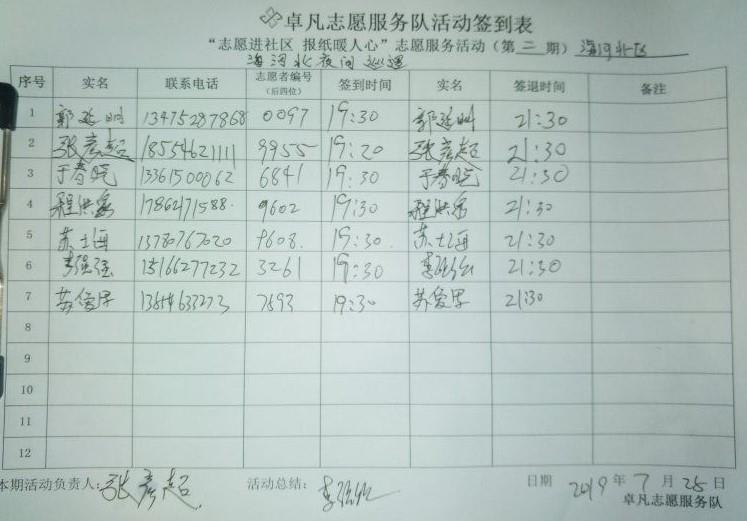 卓凡志愿服务队活动签到表
“志愿进社区 报纸暖人心”志愿服务活动（第二期）海河北区
海河北夜间巡逻
序号 实名 联系电话 志愿者编号（后四位） 签到时间 实名 签退时间 备注
1 郭延 13475287868 0097 19:30 郭延 21:30
2 张彦超 18554621111 9955 19:20 张彦超 21:30
3 于春晓 13361500062 6841 19:30 于春晓 21:30
4 程洪 1786471588 9602 19:30 程洪 21:30
5 苏士海 13780767020 9608 19:30 苏士海 21:30
6 李强强 15166277232 3261 19:30 李强 21:30
7 苏爱军 7893 19:30 苏爱军 21:30
8
9
10
11
12
本期活动负责人：张彦超 活动总结：李 日期 2019年7月25日
卓凡志愿服务队